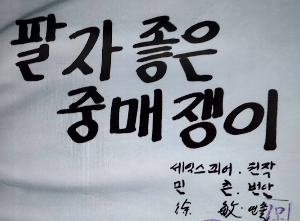 팔자좋은
중매쟁이
세익스피어. 원작
민 촌. 번안
徐 敏. 연출